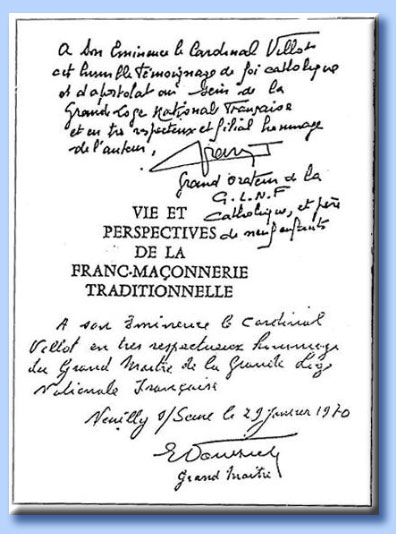 A Son Eminence le Cardinal Villot
cet humble témoignage de foi catholique
et d'apostolat au sein de la
Grande Loge National Française
et en très respectueux et filial hommage
de l'auteur,
Grand Orateur de la
G.L.N.F
Catholique, et père
de neuf enfants
VIE ET
PERSPECTIVES
DE LA
FRANC-MAÇONNERIE
TRADITIONNELLE
A son Eminence le Cardinal
Villot en très respectueux hommage
du Grand Maitre de la Grande Loge
Nationale Française
Neuilly s/Seine le 29 janvier 1970
Grand Maitre